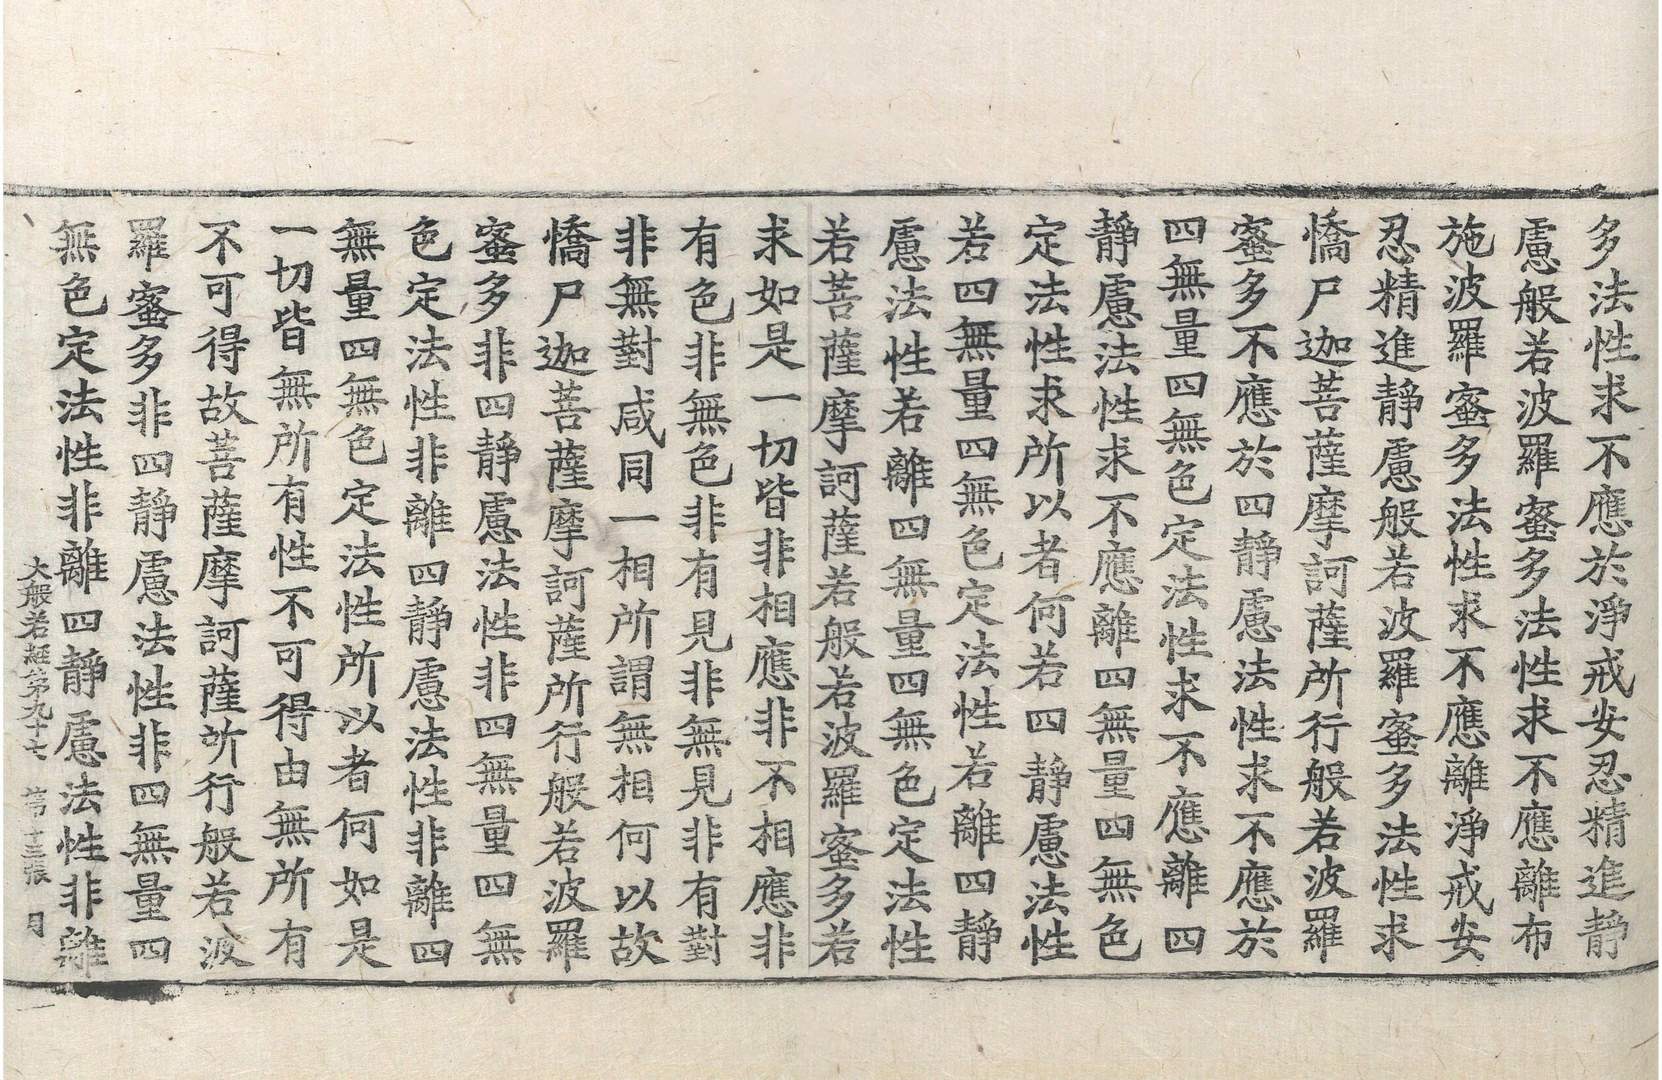 多法性求不應於淨戒安忍精進靜
慮般若波羅蜜多法性求不應離布
施波羅蜜多法性求不應離淨戒安
忍精進靜慮般若波羅蜜多法性求
憍尸迦菩薩摩訶薩所行般若波羅
蜜多不應於四靜慮法性求不應於
四無量四無色定法性求不應離四
靜慮法性求不應離四無量四無色
定法性求所以者何若四靜慮法性
若四無量四無色定法性若離四靜
慮法性若離四無量四無色定法性
若菩薩摩訶薩若般若波羅蜜多若
求如是一切皆非相應非不相應非
有色非無色非有見非無見非有對
非無對咸同一相所謂無相何以故
憍尸迦菩薩摩訶薩所行般若波羅
蜜多非四靜慮法性非四無量四無
色定法性非離四靜慮法性非離四
無量四無色定法性所以者何如是
一切皆無所有性不可得由無所有
不可得故菩薩摩訶薩所行般若波
羅蜜多非四靜慮法性非四無量四
無色定法性非離四靜慮法性非離
大般若経第九十七 第十三張 日